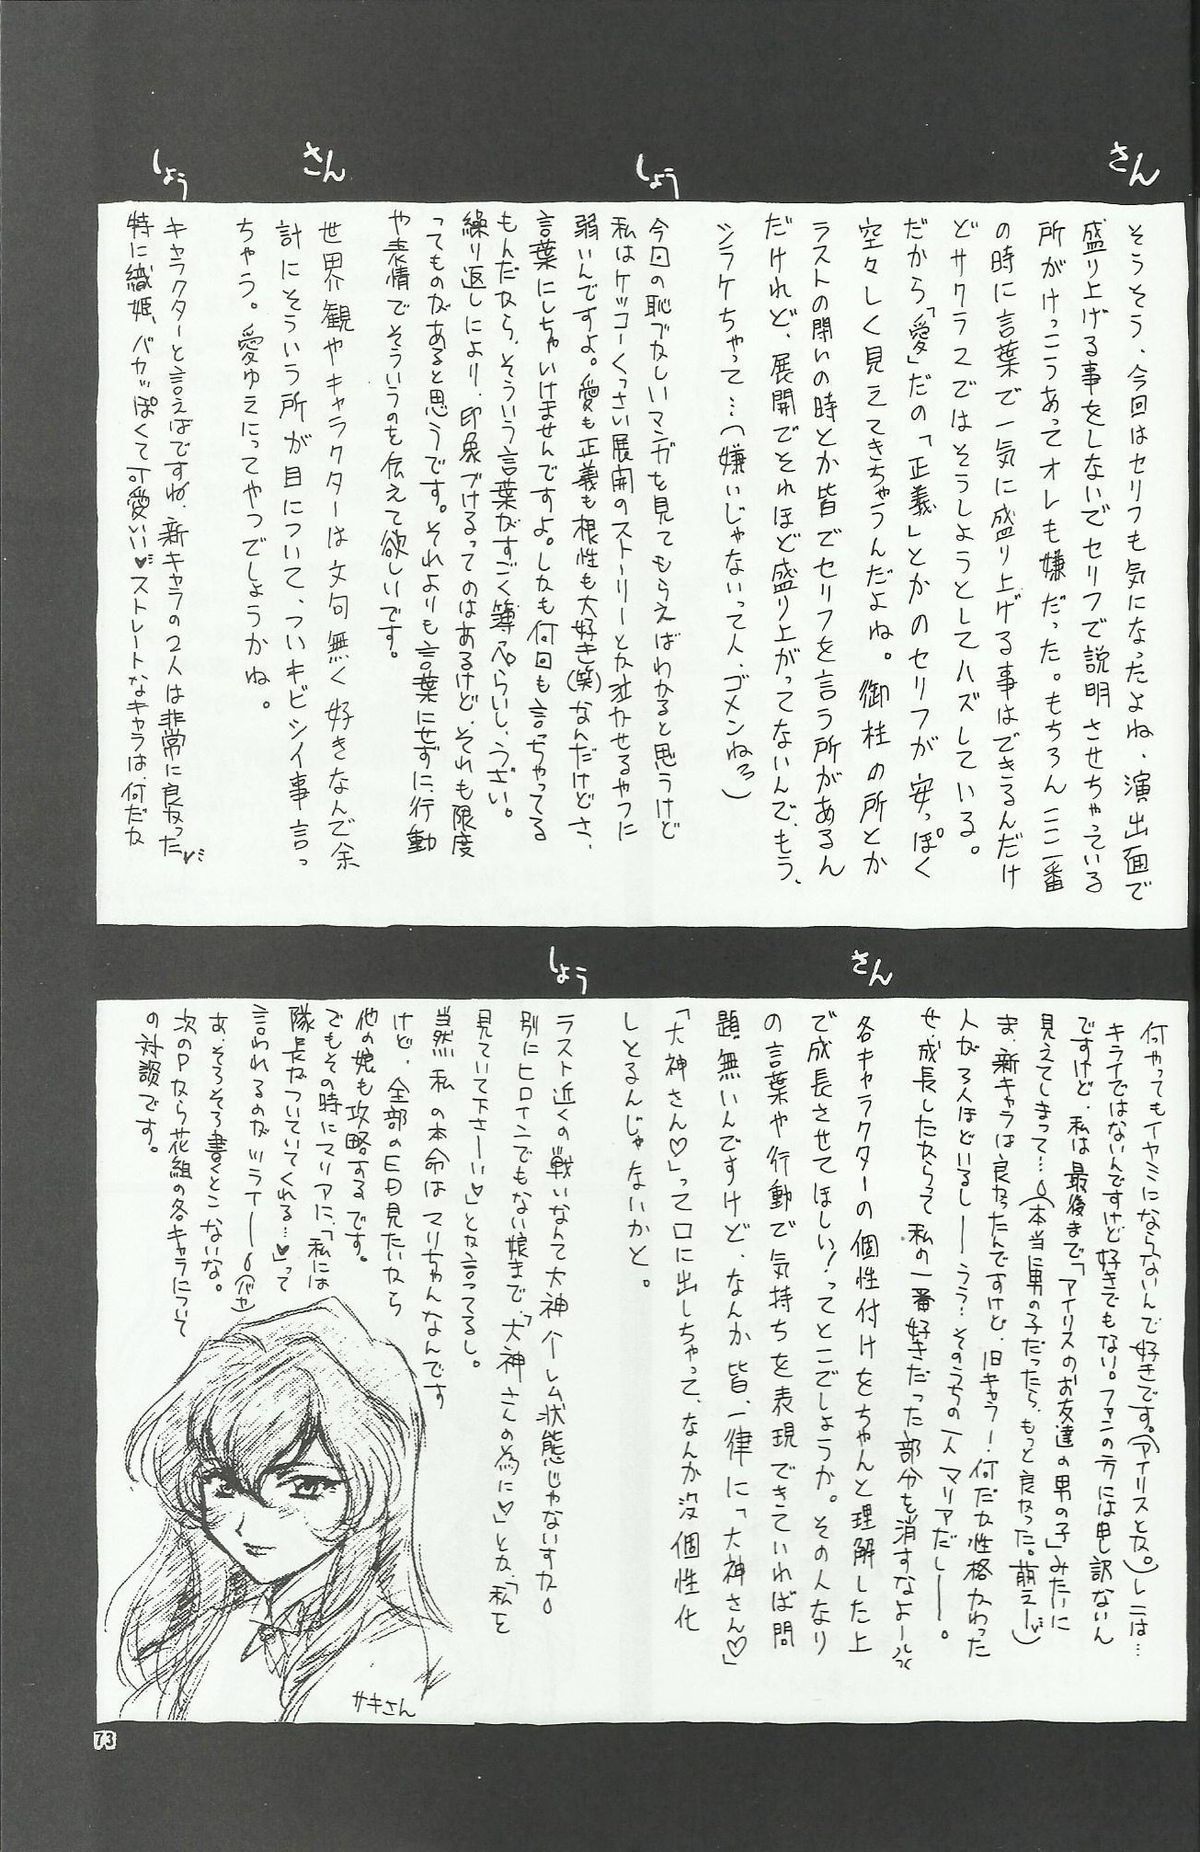 さん
そうそう、今回はセリフも気になったよね、演出面で
盛り上げる事をしないでセリフで説明させちゃっている
所がけっこうあってオレも嫌だった。もちろんここ一番
の時に言葉で一気に盛り上げる事はできるんだけ
どサクラ2ではそうしようとしてハズしている。
だから「愛」だの「正義」とかのセリフが安っぽく
空々しく見えてきちゃうんだよね。御柱の所とか
ラストの闘いの時とか皆でセリフを言う所があるん
だけれど、展開でそれほど盛り上がってないんで、もう、
シラケちゃって…(嫌いじゃないって人、ゴメンね)
しょう
今回の恥ずかしいマンガを見てもらえばわかると思うけど
私はケッコーくっさい展開のストーリーとか泣かせるやつに
弱いんですよ。愛も正義も根性も大好き(笑)なんだけどさ、
言葉にしちゃいけませんですよ。しかも何回も言っちゃってる
もんだから、そういう言葉がすごく薄っぺらいし、うざい。
繰り返しにより、印象づけるってのはあるけど、それも限度
ってものがあると思うです。それよりも言葉にせずに、行動
や表情でそういうのを伝えて欲しいです。
さん
世界観やキャラクターは文句無く好きなんで余
計にそういう所が目について、ついキビシイ事言っ
ちゃう。愛ゆえにってやつでしょうかね。
しょう
キャラクターと言えばですね、新キャラの2人は非常に良かった
特に織姫、バカッぽくて可愛い♥ストレートなキャラは、何だか
何やってもイヤミにならないんで好きです。(アイリスとか。)レニは…
キライではないんですけど好きでもない。ファンの方には申し訳ないん
ですけど、私は最後まで「アイリスのお友達の男の子」みたいに
見えてしまって…(本当に男の子だったら、もっと良かった。萌えー)
ま、新キャラは良かったんですけど、旧キャラー・何だか性格かわった
人が3人ほどいるしーうう…そのうちの一人マリアだしー。
せ、成長したからって私の一番好きだった部分を消すなよー
さん
各キャラクターの個性付けをちゃんと理解した上
で成長させてほしい！ってとこでしょうか。その人なり
の言葉や行動で気持ちを表現できていれば問
題無いんですけど、なんか皆、一律に「大神さん♡」
「大神さん♡」って口に出しちゃって、なんか没個性化
しとるんじゃないかと。
しょう
ラスト近くの戦いなんて大神ハーレム状態じゃないすか
別にヒロインでもない娘まで、「大神さんの為に♡」とか、「私を
見ていて下さーい♡」とか言ってるし。
当然 私の本命はマリちゃんなんです
けど、全部のED見たいから
他の娘も攻略するです。
でもその時にマリアに、「私には
隊長がついていてくれる…♥」って
言われるのがツライー(バカ)
あ、そろそろ書くとこないな。
次のPから花組の各キャラについて
の対談です。
サキさん
73